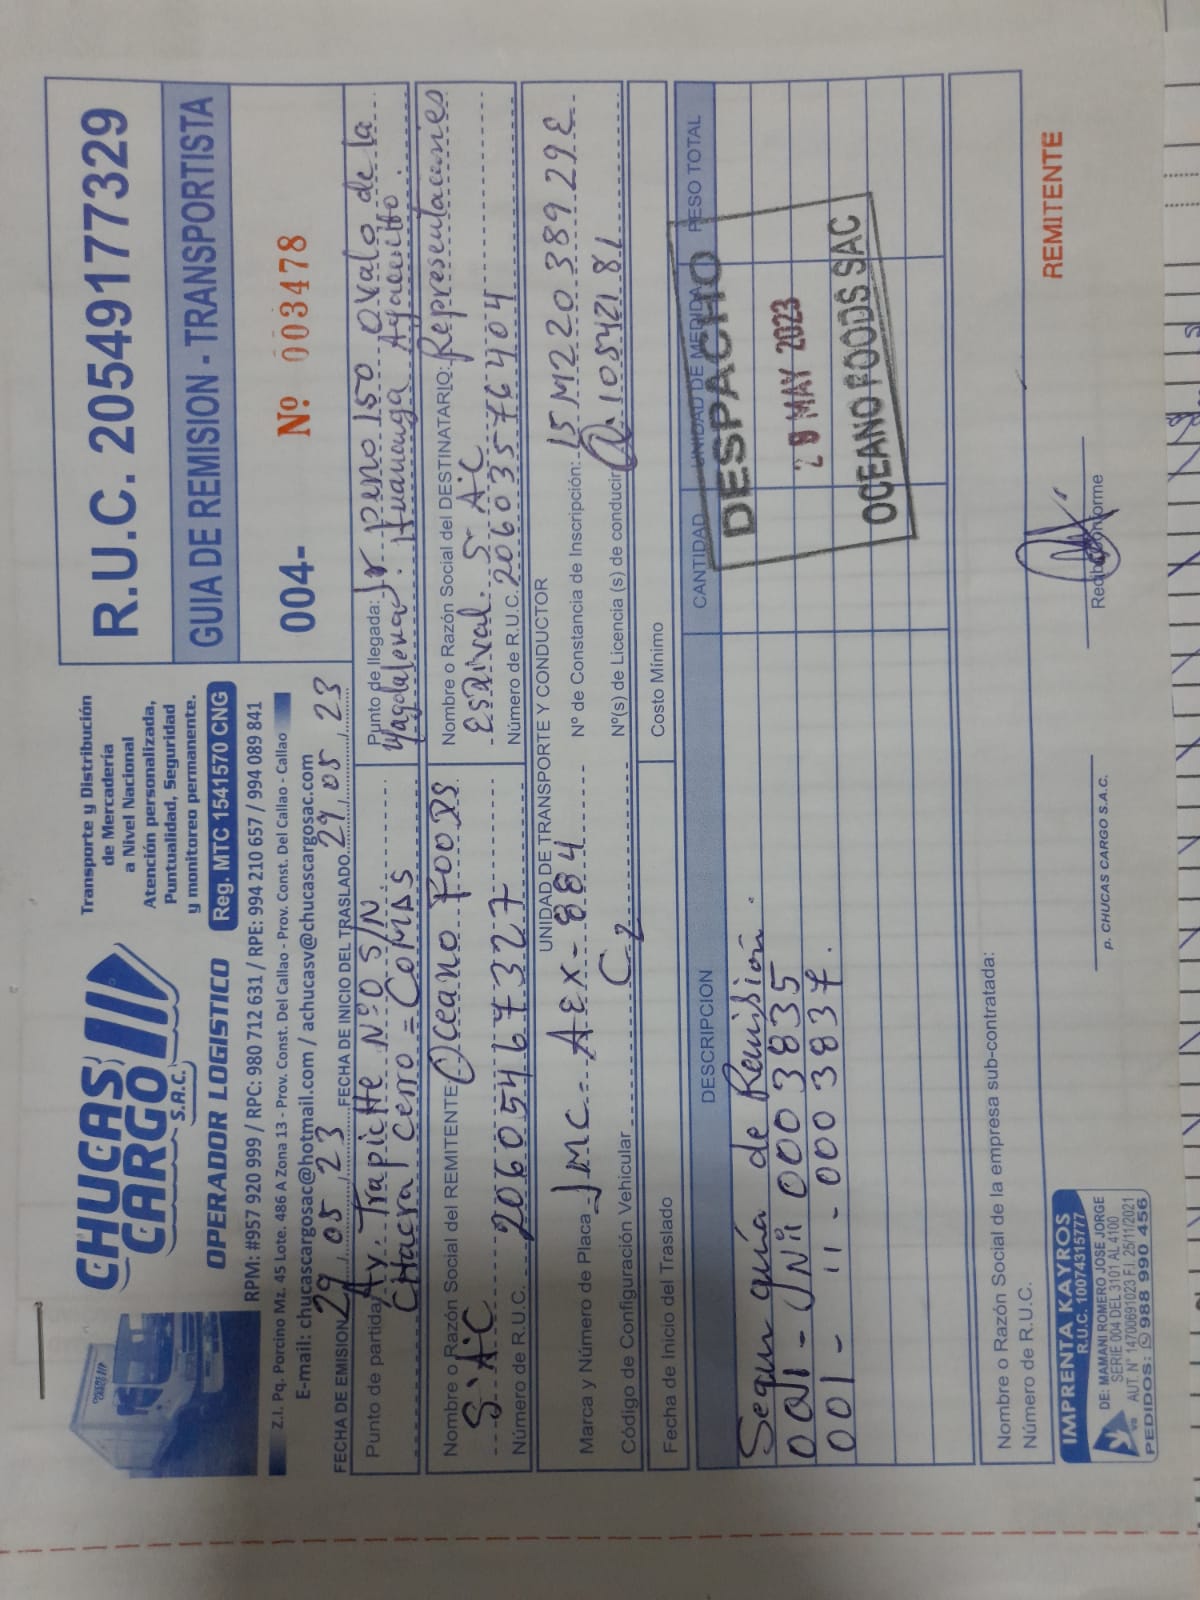 CHUCAS
CARGO
S.A.C.
OPERADOR LOGISTICO
Transporte y Distribución
de Mercadería
a Nivel Nacional
Atención personalizada,
Puntualidad, Seguridad
y monitoreo permanente.
Reg. MTC 1541570 CNG
RPM: #957 920 999 / RPC: 980 712 631 / RPE: 994 210 657 / 994 089 841
Z.I. Pq. Porcino Mz. 45 Lote. 486 A Zona 13 - Prov. Const. Del Callao - Prov. Const. Del Callao - Callao
E-mail: chucascargosac@hotmail.com / achucasv@chucascargosac.com
R.U.C. 20549177329
GUIA DE REMISION - TRANSPORTISTA
004- Nº 003478
FECHA DE EMISION 29 05 23 FECHA DE INICIO DEL TRASLADO 29 05 23
Punto de partida: Av. Trapiche Nº 0 S/N
Chacra Cerro = Comas
Punto de llegada: Jr Peno 150 Ovalo de la
Magdalena. Huamanga Ayacucho.
Nombre o Razón Social del REMITENTE: Oceano Foods
S.A.C
Número de R.U.C. 20605467327
Nombre o Razón Social del DESTINATARIO: Representaciones
S.A.C
Número de R.U.C. 20603576404
UNIDAD DE TRANSPORTE Y CONDUCTOR
Marca y Número de Placa JMC - AEX-884
Nº de Constancia de Inscripción: 15M22038929E
Código de Configuración Vehicular C2
Nº(s) de Licencia (s) de conducir Q10542181
Fecha de Inicio del Traslado
Costo Mínimo
DESCRIPCION CANTIDAD UNIDAD DE MEDIDA PESO TOTAL
Segun guía de Remisión.
001 - Nº 0003835
001 - " - 0003837.
DESPACHO
28 MAY 2023
OCEANO FOODS SAC
Nombre o Razón Social de la empresa sub-contratada:
Número de R.U.C.
IMPRENTA KAYROS
R.U.C. 10074315777
DE: MAMANI ROMERO JOSE JORGE
SERIE 004 DEL 3101 AL 4100
AUT. N° 14700691023 F.I. 25/11/2021
PEDIDOS: 988 990 456
p. CHUCAS CARGO S.A.C.
Recibí conforme
REMITENTE